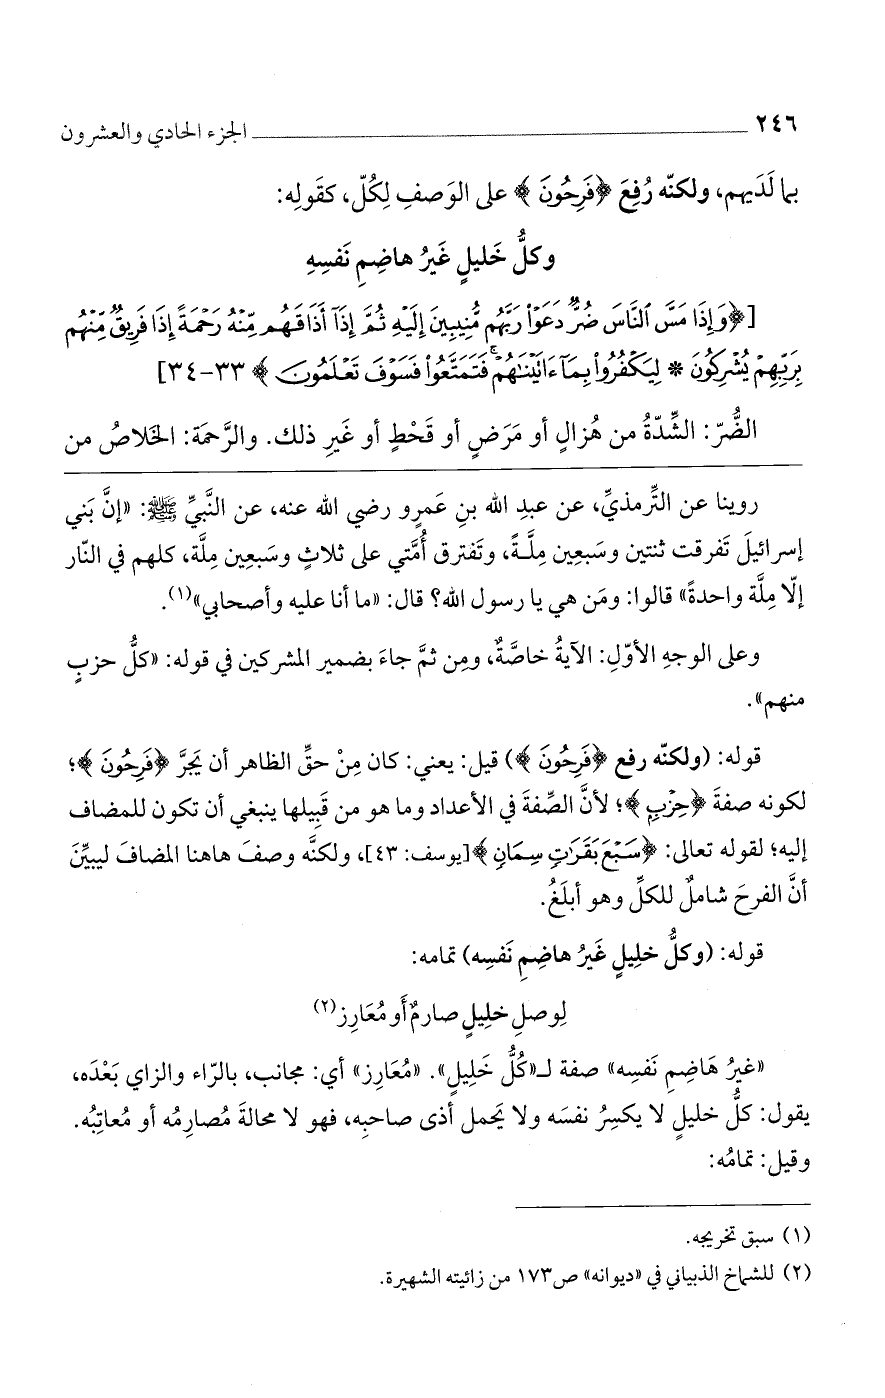 ٢٤٦ الجزء الحادي والعشرون
بما لَدَيهم، ولكنّه رُفِعَ ﴿فَرِحُونَ﴾ على الوَصفِ لِكُلّ، كقَولِه:
وكلُّ خَليلٍ غَيرُ هاضِمِ نَفسِهِ
[﴿وَإِذَا مَسَّ ٱلنَّاسَ ضُرٌّ دَعَوْا۟ رَبَّهُم مُّنِيبِينَ إِلَيْهِ ثُمَّ إِذَآ أَذَاقَهُم مِّنْهُ رَحْمَةً إِذَا فَرِيقٌ مِّنْهُم
بِرَبِّهِمْ يُشْرِكُونَ * لِيَكْفُرُوا۟ بِمَآ ءَاتَيْنَٰهُمْ ۚ فَتَمَتَّعُوا۟ فَسَوْفَ تَعْلَمُونَ﴾ ٣٣-٣٤]
الضُّرّ: الشِّدّةُ من هُزالٍ أو مَرَضٍ أو قَحْطٍ أو غَيرِ ذلك. والرَّحمَة: الخَلاصُ من
روينا عن التِّرمذيِّ، عن عبدِ الله بنِ عَمرٍو رضي الله عنه، عن النَّبيِّ ﷺ: «إنَّ بَني
إسرائيلَ تَفرقت ثنتين وسَبعين مِلَّـةً، وتَفترق أُمَّتي على ثلاثٍ وسَبعين مِلَّة، كلهم في النّار
إلّا مِلَّة واحدةً» قالوا: ومَن هي يا رسول الله؟ قال: «ما أنا عليه وأصحابي»(١).
وعلى الوجهِ الأوّلِ: الآيةُ خاصَّةٌ، ومِن ثمَّ جاءَ بضمير المشركين في قوله: «كلُّ حزبٍ
منهم».
قوله: (ولكنّه رفع ﴿فَرِحُونَ﴾) قيل: يعني: كان مِنْ حقِّ الظاهر أن يَجرَّ ﴿فَرِحُونَ﴾؛
لكونه صفةَ ﴿حِزْبٍ﴾؛ لأنَّ الصِّفةَ في الأعداد وما هو من قَبِيلها ينبغي أن تكون للمضاف
إليه؛ لقوله تعالى: ﴿سَبْعَ بَقَرَٰتٍ سِمَانٍ﴾[يوسف: ٤٣]، ولكنَّه وصفَ هاهنا المضافَ ليبيِّنَ
أنَّ الفرحَ شاملٌ للكلِّ وهو أبلَغُ.
قوله: (وكلُّ خليلٍ غَيرُ هاضِمِ نَفسِه) تمامه:
لِوصلِ خليلٍ صارمٌ أو مُعَارِز(٢)
«غيرُ هَاضِمِ نَفسِه» صفة لـ«كُلُّ خَلِيلٍ». «مُعَارِز» أي: مجانب، بالرّاء والزاي بَعْدَه،
يقول: كلُّ خليلٍ لا يكسِرُ نفسَه ولا يَحمل أذى صاحبِه، فهو لا محالةَ مُصارِمُه أو مُعاتِبُه.
وقيل: تمامُه:
(١) سبق تخريجه.
(٢) للشماخ الذبياني في «ديوانه» ص١٧٣ من زائيته الشهيرة.